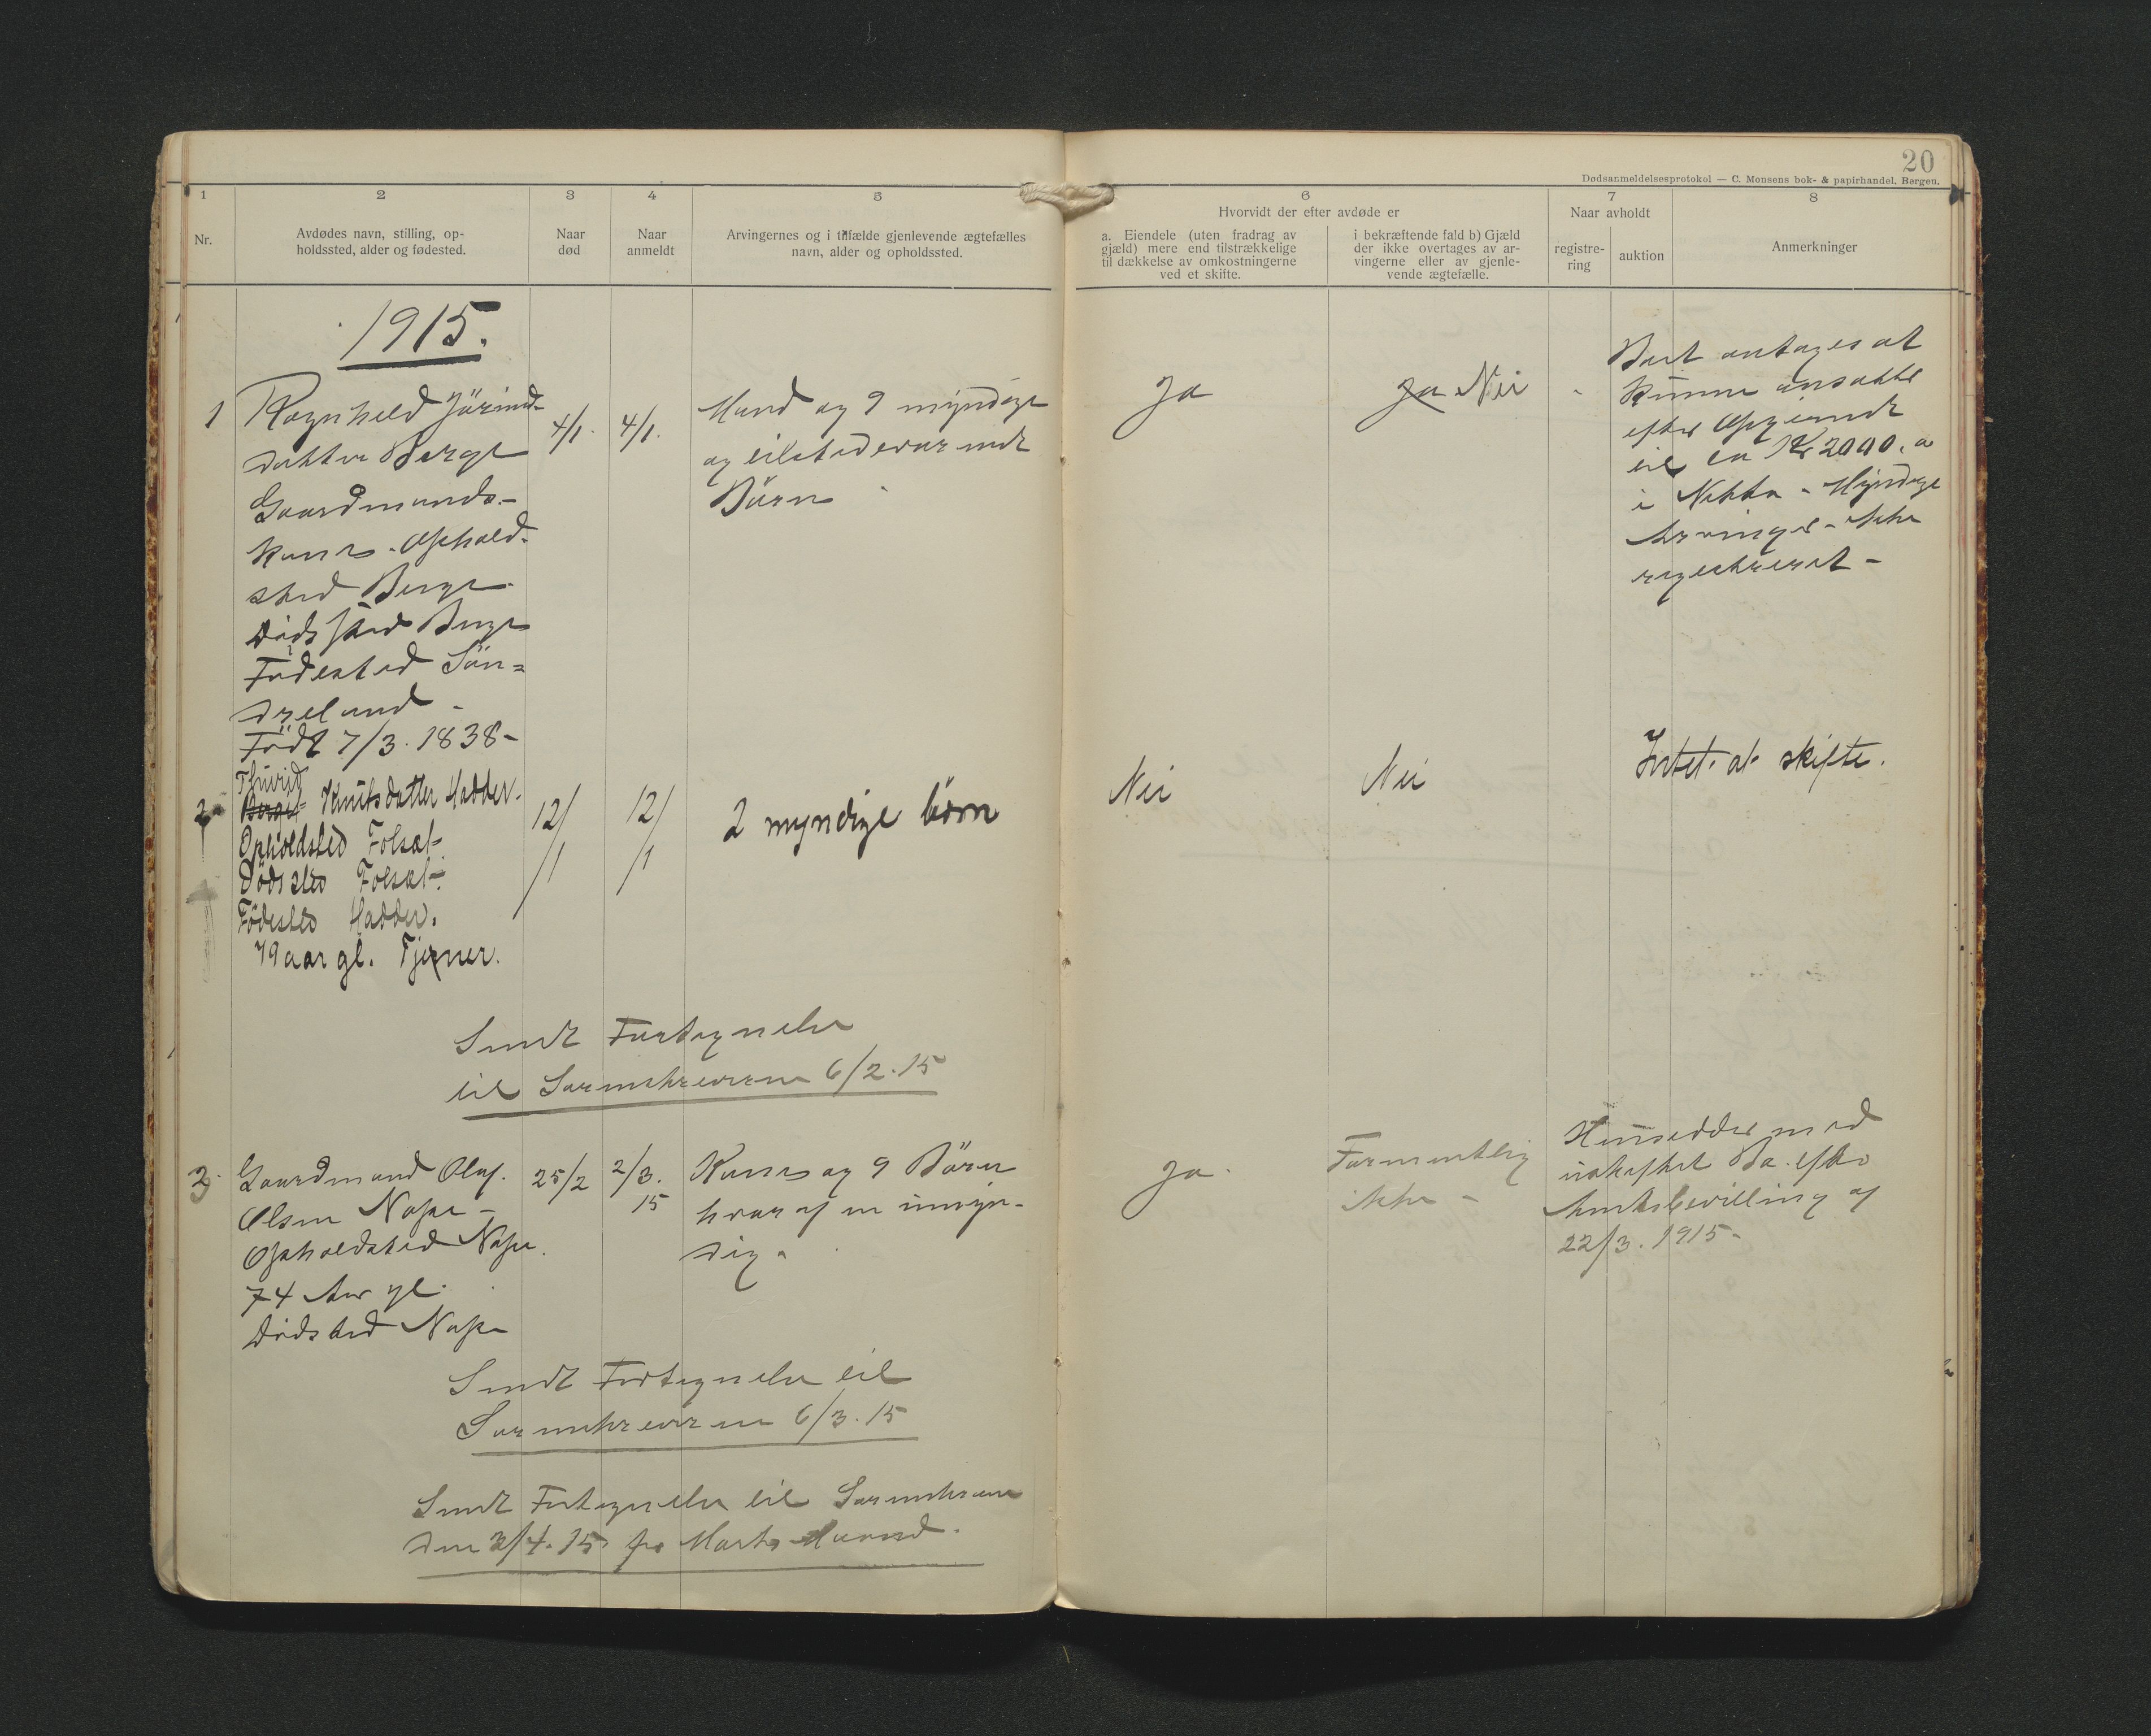 20
Dødsanmeldelsesprotokol — C. Monsens bok- & papirhandel, Bergen.
1
2
3
4
5
6
7
8
Nr.
Avdødes navn, stilling, op-
holdssted, alder og fødested.
Naar
død
Naar
anmeldt
Arvingernes og i tilfælde gjenlevende ægtefælles
navn, alder og opholdssted.
Hvorvidt der efter avdøde er
a. Eiendele (uten fradrag av
gjæld) mere end tilstrækkelige
til dækkelse av omkostningerne
ved et skifte.
i bekræftende fald b) Gjæld
der ikke overtages av ar-
vingerne eller av gjenle-
vende ægtefælle.
Naar avholdt
registre-
ring
auktion
Anmerkninger
1915.
1
Ragnhild Jörund-
datter Berge
Gaardmands-
kone. Ophold-
sted Berge
Dödsted Berge
Födested Sön-
dreland
Födt 7/3. 1838-
4/1.
4/1.
Mand og 9 myndige
og tilstedeværende
Börn
Ja
Ja Nei
Boet antages at
kunne ansættes
efter Opgivende
til ca Kr 2000.
i Netto - Myndige
Arvinger - ikke
registreret -
2
Thurid
Knutsdatter Hadder.
Opholdsted Folsæt.
Dødssted Folsæt.
Fødested Hadder.
79 aar gl. Tjener.
12/1
12/1
2 myndige børn
Nei
Nei
Intet at skifte.
Sendt Fortegnelse
til Sorenskriveren 6/2.15
3
Gaardmand Olaf
Olsen Nape -
Opholdsted Nape.
74 Aar gl.
Dödsted Nape
25/2
2/3.
15
Kone og 9 Börn
hvoraf en umyn-
dig.
Ja.
Formentlig
ikke -
Hensidder med
uskiftet Bo. efter
Amtsbevilling af
22/3. 1915-
Sendt Fortegnelse til
Sorenskriveren 6/3.15
Sendt Fortegnelse til Sorenskriveren
den 3/4.15 for Marts Maaned.